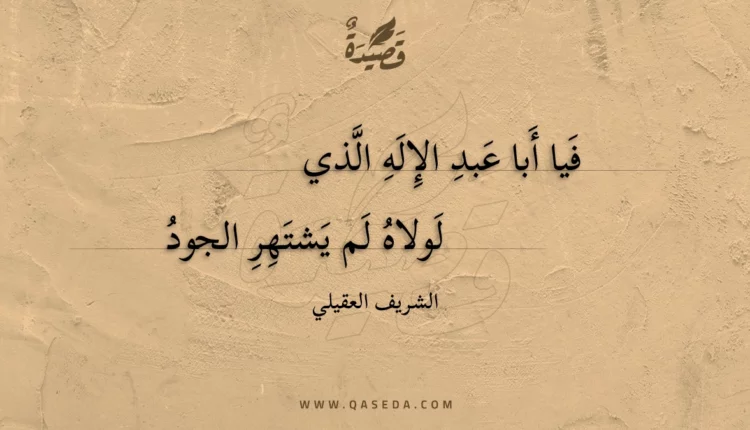 قَصِيْدَةٌ
فَيا أَبا عَبدِ الإِلَهِ الَّذي
لَولاهُ لَم يَشتَهِرِ الجودُ
الشريف العقيلي
WWW.QASEDA.COM